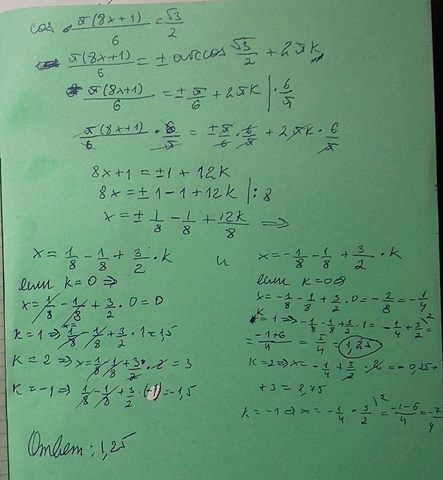 cos π(8x+1)/6 = √3/2
π(8x+1)/6 = ± arccos √3/2 + 2πk
π(8x+1)/6 = ± π/6 + 2πk | · 6/π
π(8x+1)/6 · 6/π = ± π/6 · 6/π + 2πk · 6/π
8x+1 = ±1 + 12k
8x = ±1 - 1 + 12k | : 8
x = ± 1/8 - 1/8 + 12k/8 ⇒
x = 1/8 - 1/8 + 3/2 · k и x = -1/8 - 1/8 + 3/2 · k
если k=0 ⇒
x = 1/8 - 1/8 + 3/2 · 0 = 0
k=1 ⇒ x = 1/8 - 1/8 + 3/2 · 1 = 1,5
k=2 ⇒ x = 1/8 - 1/8 + 3/2 · 2 = 3
k=-1 ⇒ 1/8 - 1/8 + 3/2 · (-1) = -1,5
если k=0 ⇒
x = -1/8 - 1/8 + 3/2 · 0 = -2/8 = -1/4
k=1 ⇒ -1/8 - 1/8 + 3/2 · 1 = -1/4 + 3/2 =
= -1+6/4 = 5/4 = 1,25
k=2 ⇒ x = -1/4 + 3/2 · 2 = -0,25 +
+ 3 = 2,75
k=-1 ⇒ x = -1/4 - 3/2 = -1-6/4 = -7/4
Ответ: 1,25